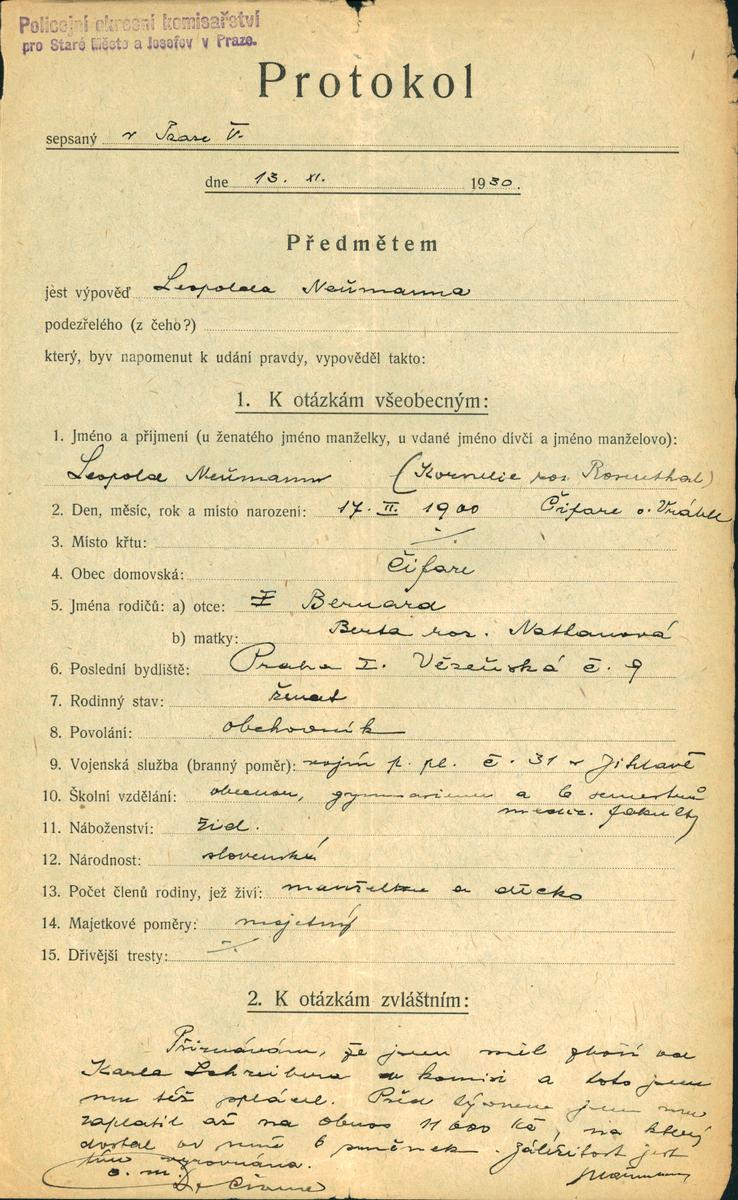 Policejní okresní komisařství
pro Staré Město a Josefov v Praze.
Protokol
sepsaný v Praze V.
dne 13. XI. 1930.
Předmětem
jest výpověď Leopolda Neümanna
podezřelého (z čeho?)
který, byv napomenut k udání pravdy, vypověděl takto:
1. K otázkám všeobecným:
1. Jméno a příjmení (u ženatého jméno manželky, u vdané jméno dívčí a jméno manželovo):
Leopold Neümann (Kornelie roz. Rosenthal)
2. Den, měsíc, rok a místo narození: 17. II. 1900 Čifare o. Vráble
3. Místo křtu: ·/.
4. Obec domovská: Čifare
5. Jména rodičů: a) otce: Bernard
b) matky: Berta roz. Nathanová
6. Poslední bydliště: Praha I. Vězeňská č. 9
7. Rodinný stav: ženat
8. Povolání: obchodník
9. Vojenská služba (branný poměr): vojín p. pl. č. 31 v Jihlavě
10. Školní vzdělání: obecnou, gymnasium a 6 semestrů
medic. fakulty
11. Náboženství: žid.
12. Národnost: slovenská
13. Počet členů rodiny, jež živí: manželku a děcko
14. Majetkové poměry: majetný
15. Dřívější tresty: ·/.
2. K otázkám zvláštním:
Přiznávám, že jsem měl zboží od
Karla Schreibera v komisi a toto jsem
mu též splácel. Před týdnem jsem mu
zaplatil až na obnos 11 000 Kč, na který
dostal ode mně 6 směnek. Záležitost jest
tím vyrovnána.
Neümann